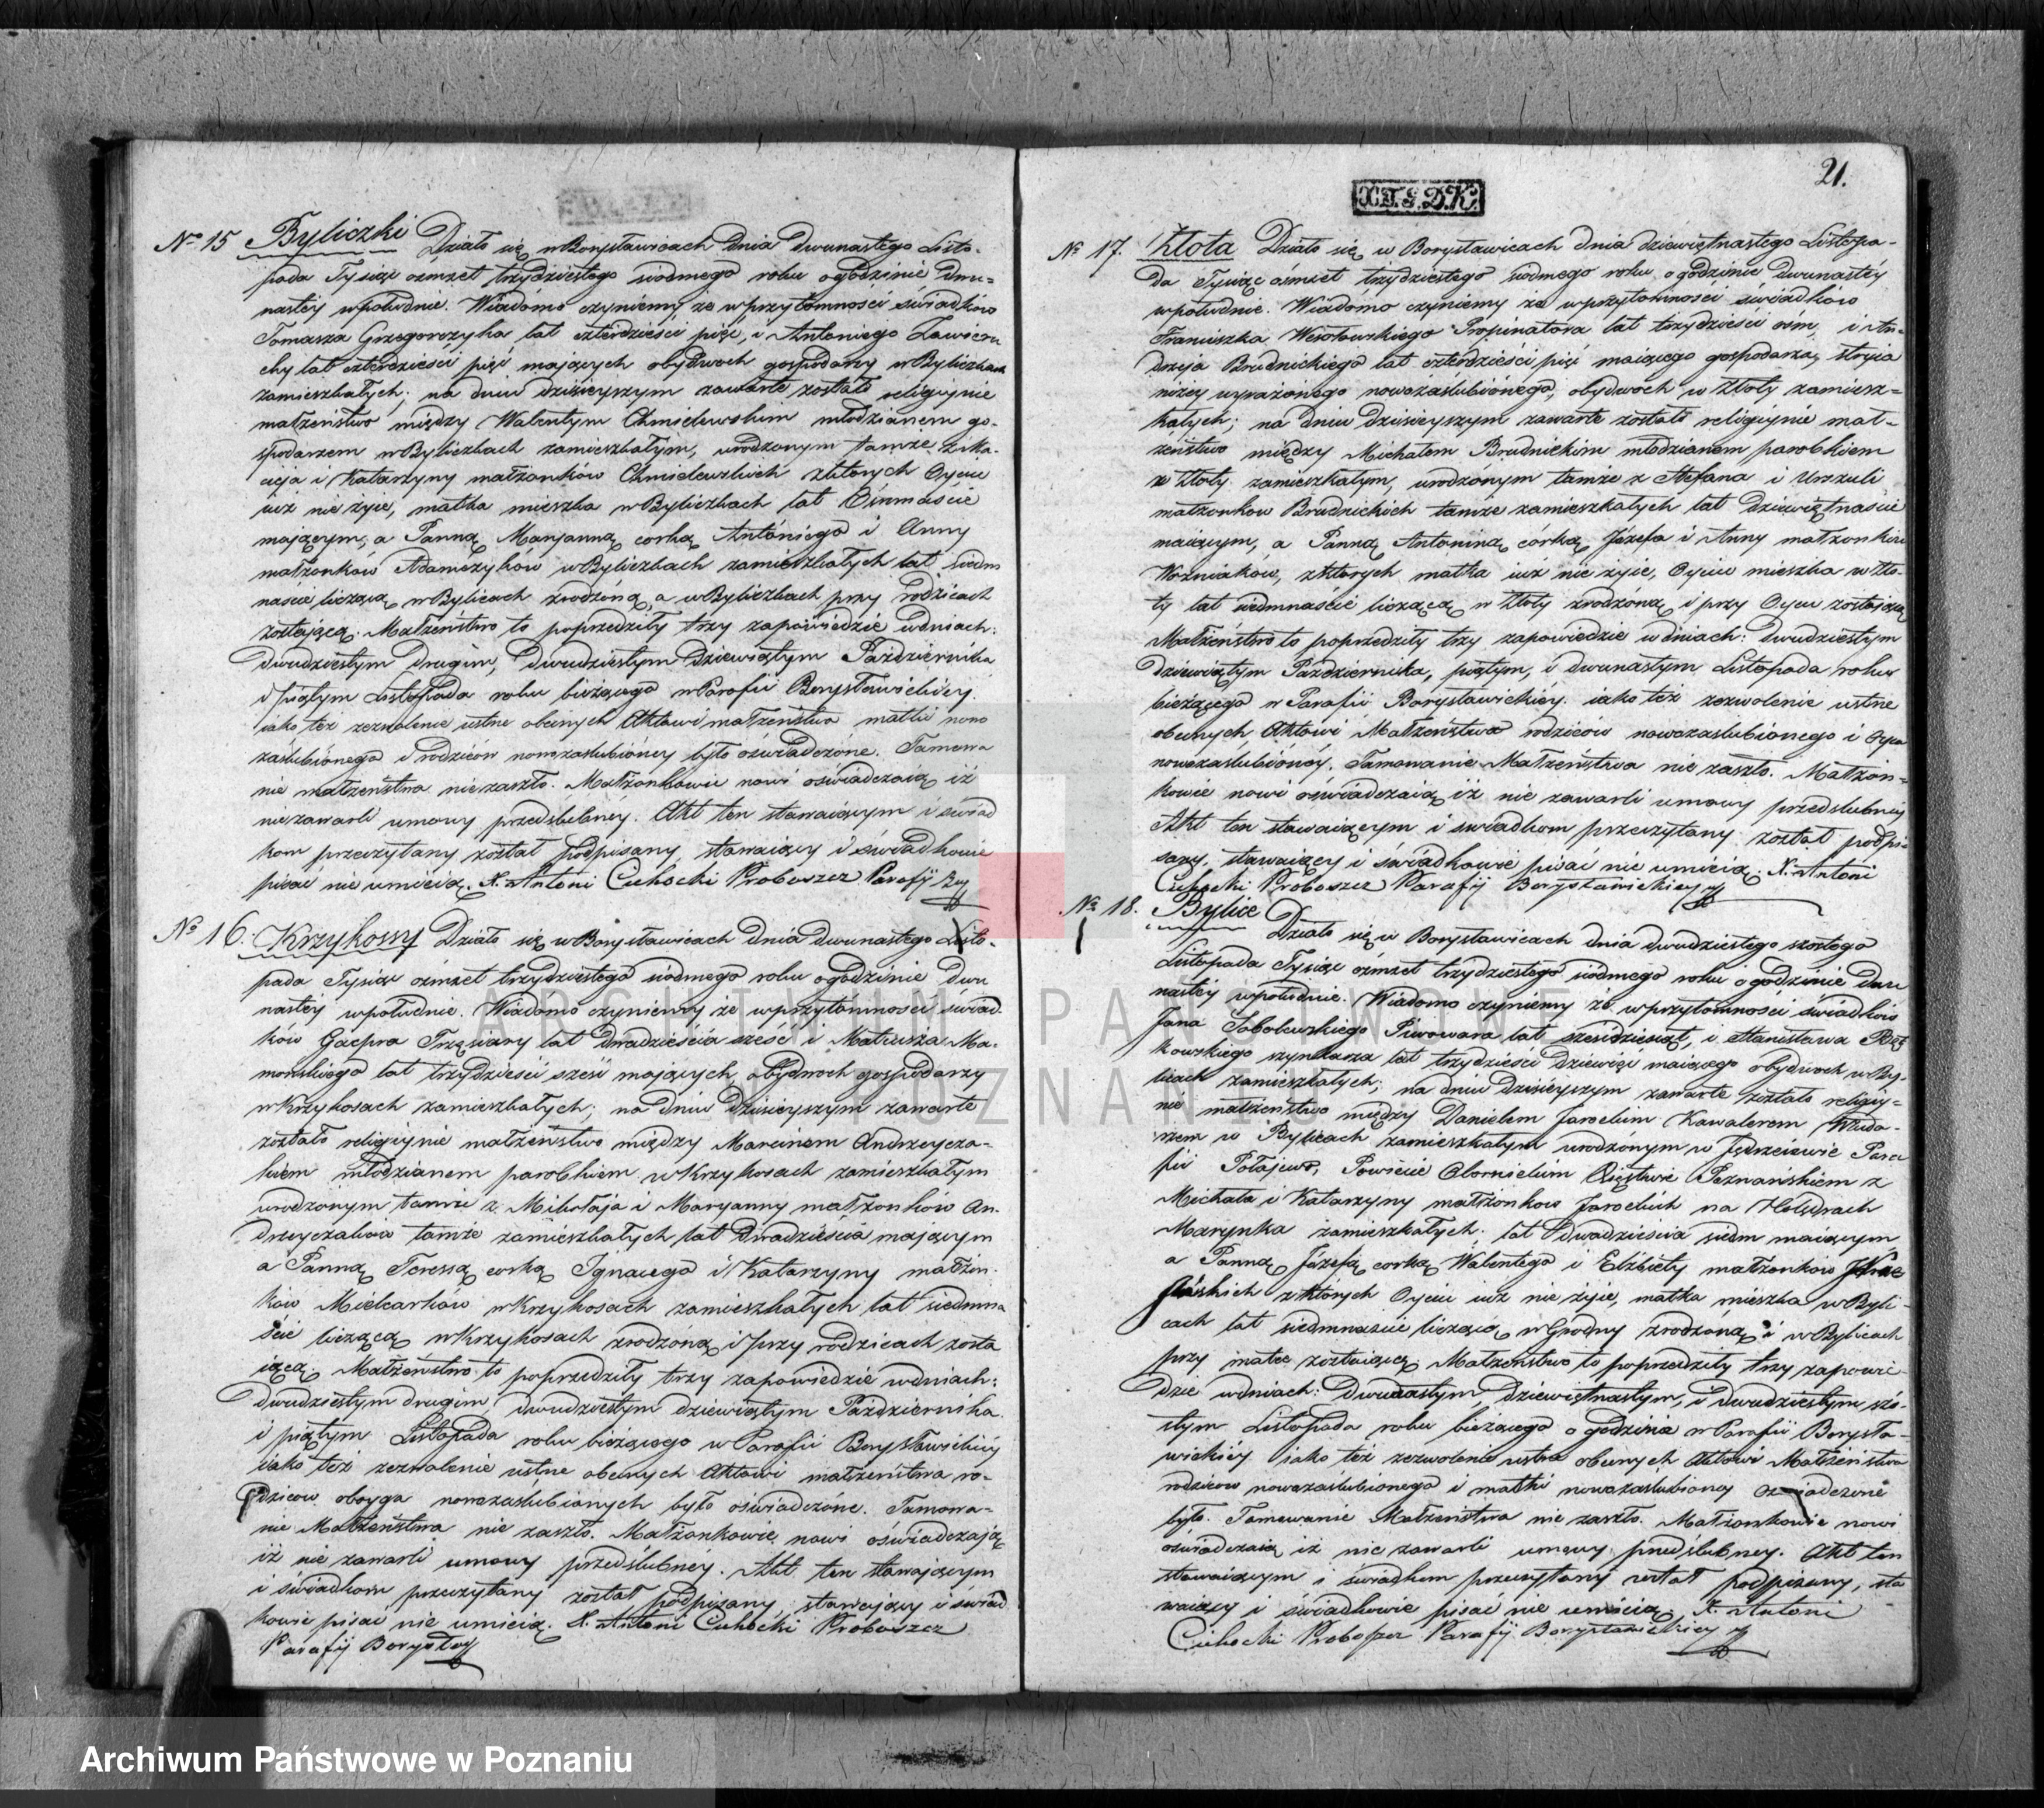 No 15 Byliczki Działo się w Borysławicach dnia dwunastego Listo-
pada Tysiąc ośmset trzydziestego siodmego roku o godzinie dwu-
nastéy wpołudnie. Wiadomo czyniemy, że wprzytomności świadków
Tomasza Grzegorczyka lat czterdzieści pięć, i Antoniego Zawieru
chy lat czterdzieści pięć mających obydwoch gospodarzy w Byliczkach
zamieszkałych; na dniu dzisieyszym zawarte zostało religiynie
małżeństwo między Walentym Chmielewskim młodzianem go-
spodarzem w Byliczkach zamieszkałym, urodzonym tamże z Ma-
cieja i Katarzyny małżonków Chmielewskich z których Oyciec
iuż nie żyie, matka mieszka w Byliczkach lat Ośmnaście
mającym, a Panną Maryanną corką Antoniego i Anny
małżonków Adamczyków w Byliczkach zamieszkałych lat siedm
nascie liczącą w Bylicach zrodzoną, a w Byliczkach przy rodzicach
zostającą. Małżeństwo to poprzedziły trzy zapowiedzie w dniach:
dwudziestym drugim, dwudziestym dziewiątym Października
i piątym Listopada roku bieżącego w Parafii Borysławickiéy.
iako też zezwolenie ustne obecnych Aktowi małżeństwa matki nowo
zaślubionego i rodzicow nowozaslubionéy było oświadczone. Tamowa
nie małżeństwa nie zaszło. Małżonkowie nowi oświadczaią iż
nie zawarli umowy przedślubnéy. Akt ten stawaiącym i świad
kom przeczytany został podpisany stawaiący i świadkowie
pisać nie umieią. X. Antoni Cichocki Proboszcz Parafij Bory
No 16. Krzykossy Działo się w Borysławicach dnia dwunastego Listo-
pada Tysiąc ośmset trzydziestego siodmego roku o godzinie dwu
nastéy wpołudnie. Wiadomo czyniemy że wprzytomności świad
ków Gacpra Trzęsiary lat dwadzieścia sześć i Mateusza Ma-
mońskiego lat trzydzieści sześć mających, obydwoch gospodarzy
w Krzykosach zamieszkałych; na dniu dzisieyszym zawarte
zostało religiynie małżeństwo między Marcinem Andrzejcza-
kiem młodzianem parobkiem w Krzykosach zamieszkałym
urodzonym tamże z Mikołaja i Maryanny małżonków An-
drzeyczaków tamże zamieszkałych lat dwadzieścia mającym
a Panną Teressą corką Ignacego i Katarzyny małżon-
ków Mielcarków w Krzykosach zamieszkałych lat siedmna
ście liczącą w Krzykosach zrodzoną i przy rodzicach zosta
iącą. Małżeństwo to poprzedziły trzy zapowiedzie w dniach:
dwudziestym drugim, dwudziestym dziewiątym Października
i piątym Listopada roku bieżącego w Parafii Borysławickiéy
iako też zezwolenie ustne obecnych Aktowi małżeństwa ro-
dzicow oboyga nowozaslubionych było oświadczone. Tamowa-
nie Małżeństwa nie zaszło. Małżonkowie nowi oświadczają
iż nie zawarli umowy przedślubnéy. Akt ten stawającym
i świadkom przeczytany został podpisany, stawający i świad
kowie pisać nie umieią. X. Antoni Cichocki Proboszcz
Parafij Borysław
21.
No 17. Złota Działo się w Borysławicach dnia dziewiętnastego Listopa-
da Tysiąc ośmset trzydziestego siodmego roku, o godzinie dwunastéy
wpołudnie. Wiadomo czyniemy że wprzytomności świadków
Franciszka Wesołowskiego Propinatora lat trzydzieści ośm, i An-
drzeja Brudnickiego lat czterdzieści pięć maiącego gospodarza, stryia
niżéy wyrażonego nowozaslubionego, obydwoch w Złoty zamiesz-
kałych; na dniu dzisieyszym zawarte zostało religiynie mał-
żeństwo między Michałem Brudnickim młodzianem parobkiem
w Złoty zamieszkałym, urodzonym tamże z Stefana i Urszuli
małżonkow Brudnickich tamże zamieszkałych lat dziewiętnaście
maiącym, a Panną Antoniną córką Józefa i Anny małżonków
Wozniaków, z których matka iuż nie żyie, Oyciec mieszka w Zło-
ty lat siedmnaście liczącą w Złoty zrodzoną i przy Oycu zostającą
Małżeństwo to poprzedziły trzy zapowiedzie w dniach: dwudziestym
dziewiątym Października, piątym, i dwunastym Listopada roku
bieżącego w Parafii Borysławickiéy. iako też zezwolenie ustne
obecnych Aktowi Małżeństwa rodziców nowozaslubionego i Oyca
nowozaślubionéy. Tamowanie Małżeństwa nie zaszło. Małżon-
kowie nowi oświadczaią iż nie zawarli umowy przedslubnéy
Akt ten stawaiącym i swiadkom przeczytany został podpi-
sany, stawaiący i świadkowie pisać nie umieią. X. Antoni
Cichocki Proboszcz Parafij Borysławickiey
No 18. Bylice Działo się w Borysławicach dnia dwudziestego szostego
Listopada Tysiąc ośmset trzydziestego siodmego roku o godzinie dwu
nastéy wpołudnie. Wiadomo czyniemy że wprzytomności świadków
Jana Sobolewskiego Piwowara lat szesdziesiąt, i Stanisława
kowskiego szynkarza lat trzydzieści dziewięć maiącego obydwoch w By-
licach zamieszkałych; na dniu dzisieyszym zawarte zostało religiy-
nie małżeństwo między Danielem Jarockim Kawalerem
rzem w Bylicach zamieszkałym urodzonym w Jędrzeiewie Para
fii Połajewo, Powiecie Obornickim Xięstwie Poznańskiem z
Michała i Katarzyny małżonkow Jarockich na Holędrach
Marynka zamieszkałych. lat dwadzieścia siedm maiącym
a Panną Józefą corką Walentego i Elżbiety małżonków
z których Oyciec iuż nie żyie, matka mieszka w Byli-
cach lat siedmnascie licząca w Grodny zrodzoną i w Bylicach
przy matce zostaiącą Małżeństwo to poprzedziły trzy zapowie-
dzie w dniach: dwunastym, dziewiętnastym, i dwudziestym szó-
stym Listopada roku bieżącego o godzinie w Parafii Borysła-
wickiéy iako też zezwolenie ustne obecnych Aktowi Małżeństwa
rodzicow nowozaslubionego i matki nowozaslubionéy oświadczone
było. Tamowanie Małżeństwa nie zaszło. Małżonkowie nowi
oświadczaią iż nie zawarli umowy przedślubney. Akt ten
stawaiącym i świadkom przeczytany został podpisany, sta
waiący i świadkowie pisać nie umieią. X. Antoni
Cichocki Proboszcz Parafij Borysławickiey
ARCHIWUM PAŃSTWOWE
W POZNANIU
Archiwum Państwowe w Poznaniu